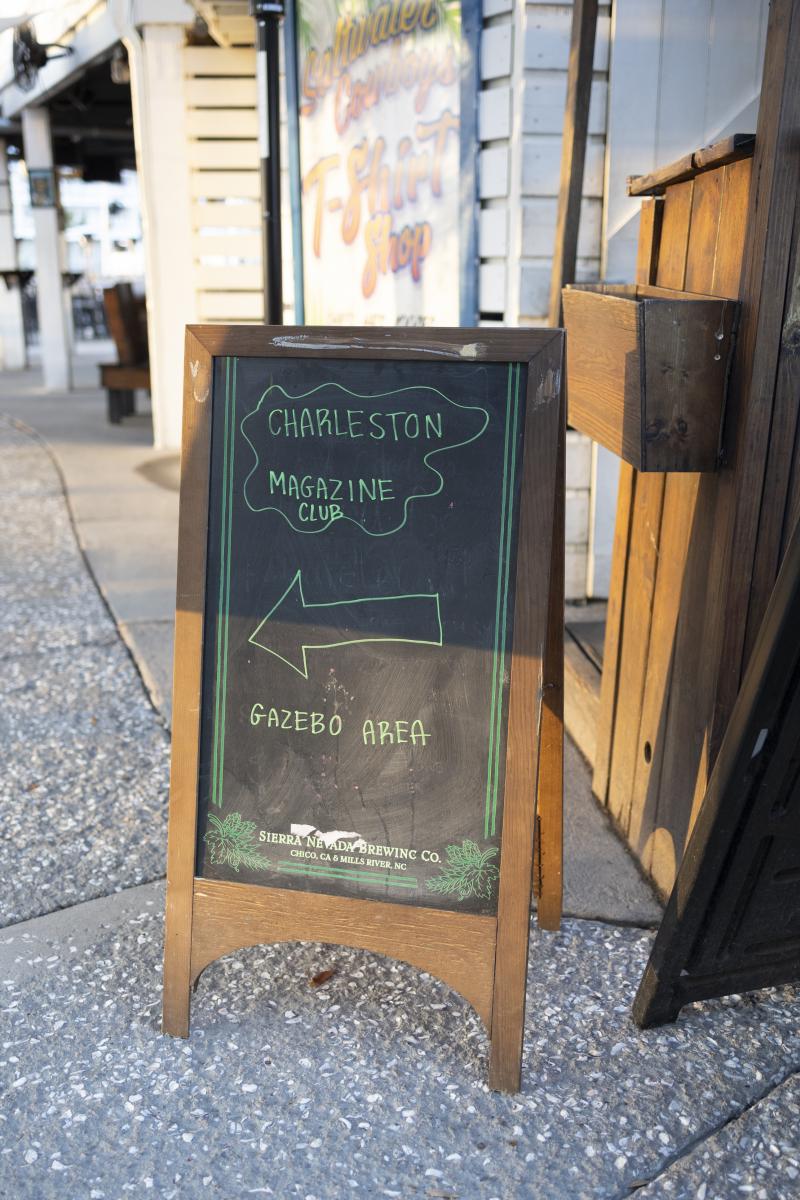 Saltwater
Cowboys
T-Shirt
Shop
CHARLESTON
MAGAZINE
CLUB
GAZEBO AREA
SIERRA NEVADA BREWING CO.
CHICO, CA & MILLS RIVER, NC